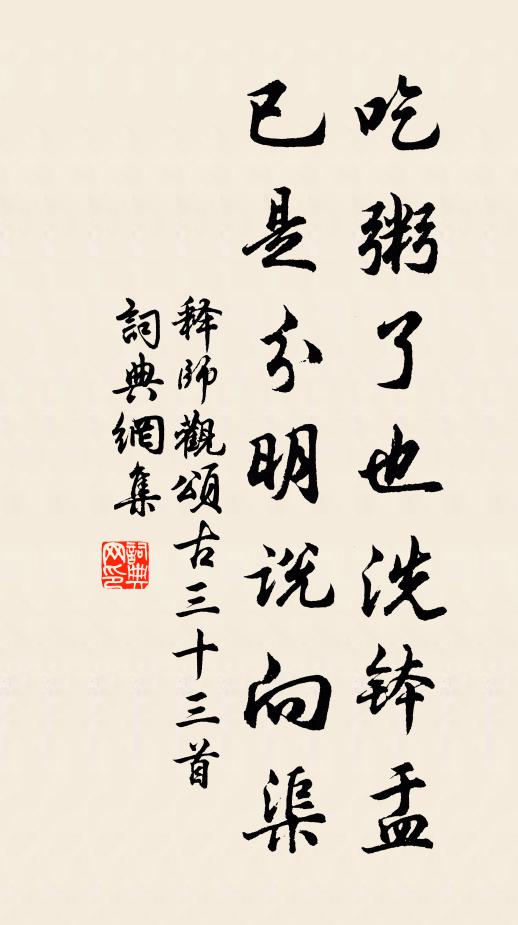 吃粥了也洗鉢盂
已是分明說向渠
释師觀頌古三十三首
詞典網集
詞典網印